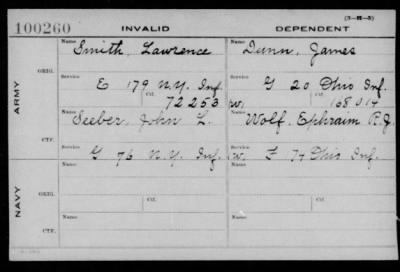 (3-H-5)
100260 INVALID DEPENDENT
Name Smith, Lawrence Name Dunn, James
ARMY
ORIG.
Service E 179 N.Y. Inf. Service G 20 Ohio Inf.
Ctf. 72253 W. Ctf. 108014
CTF.
Name Seeber, John L. Name Wolf, Ephraim P. J.
G 76 N.Y. Inf. W. F 77 Ohio Inf.
NAVY
ORIG.
Service Ctf. Service Ctf.
CTF.
Name Name